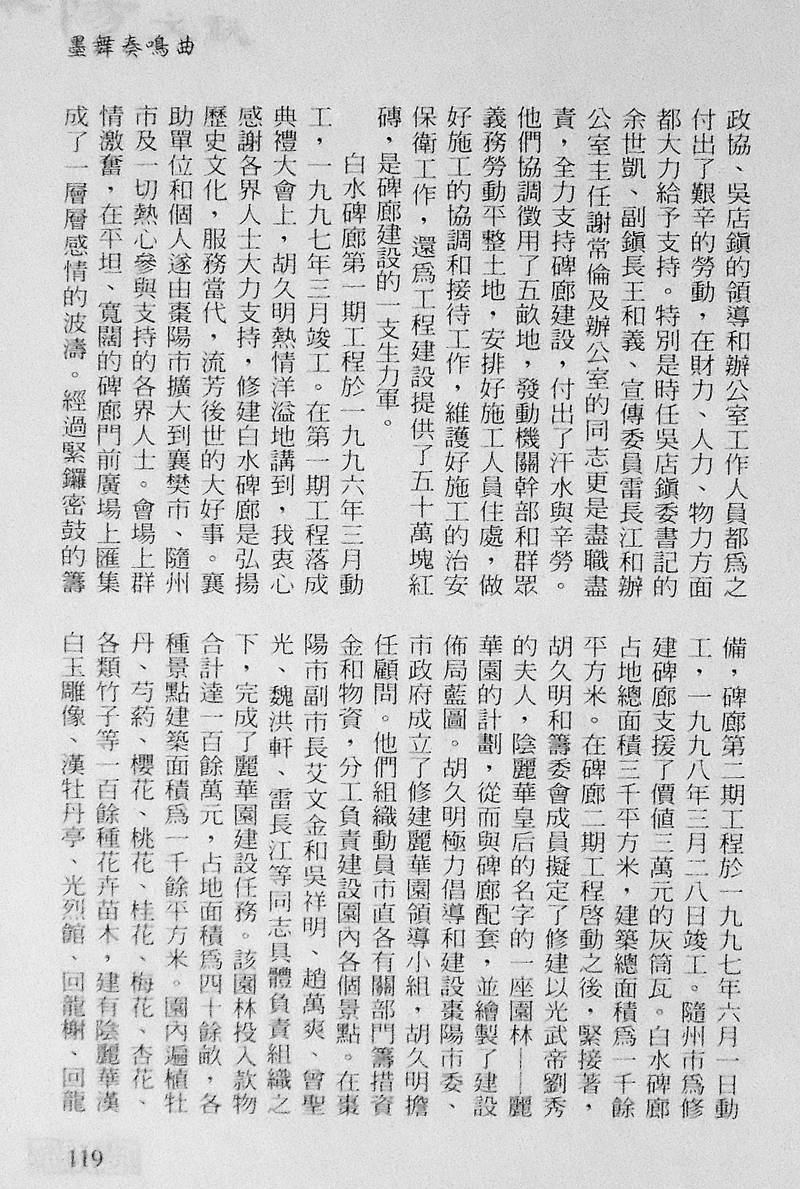 墨舞奏鳴曲
政協、吳店鎮的領導和辦公室工作人員都爲之
付出了艱辛的勞動，在財力、人力、物力方面
都大力給予支持。特別是時任吳店鎮委書記的
余世凱、副鎮長王和義、宣傳委員雷長江和辦
公室主任謝常倫及辦公室的同志更是盡職盡
責，全力支持碑廊建設，付出了汗水與辛勞。
他們協調徵用了五畝地，發動機關幹部和群眾
義務勞動平整土地，安排好施工人員住處，做
好施工的協調和接待工作，維護好施工的治安
保衛工作，還爲工程建設提供了五十萬塊紅
磚，是碑廊建設的一支生力軍。
白水碑廊第一期工程於一九九六年三月動
工，一九九七年三月竣工。在第一期工程落成
典禮大會上，胡久明熱情洋溢地講到，我衷心
感謝各界人士大力支持，修建白水碑廊是弘揚
歷史文化，服務當代，流芳後世的大好事。襄
助單位和個人遂由棗陽市擴大到襄樊市、隨州
市及一切熱心參與支持的各界人士。會場上群
情激奮，在平坦、寬闊的碑廊門前廣場上匯集
成了一層層感情的波濤。經過緊鑼密鼓的籌
備，碑廊第二期工程於一九九七年六月一日動
工，一九九八年三月二八日竣工。隨州市爲修
建碑廊支援了價值三萬元的灰筒瓦。白水碑廊
占地總面積三千平方米，建築總面積爲一千餘
平方米。在碑廊二期工程啓動之後，緊接著，
胡久明和籌委會成員擬定了修建以光武帝劉秀
的夫人，陰麗華皇后的名字的一座園林——麗
華園的計劃，從而與碑廊配套，並繪製了建設
佈局藍圖。胡久明極力倡導和建設棗陽市委、
市政府成立了修建麗華園領導小組，胡久明擔
任顧問。他們組織動員市直各有關部門籌措資
金和物資，分工負責建設園內各個景點。在棗
陽市副市長艾文金和吳祥明、趙萬爽、曾聖
光、魏洪軒、雷長江等同志具體負責組織之
下，完成了麗華園建設任務。該園林投入款物
合計達一百餘萬元，占地面積爲四十餘畝，各
種景點建築面積爲一千餘平方米。園內遍植牡
丹、芍葯、櫻花、桃花、桂花、梅花、杏花、
各類竹子等一百餘種花卉苗木，建有陰麗華漢
白玉雕像、漢牡丹亭、光烈館、回龍榭、回龍
119